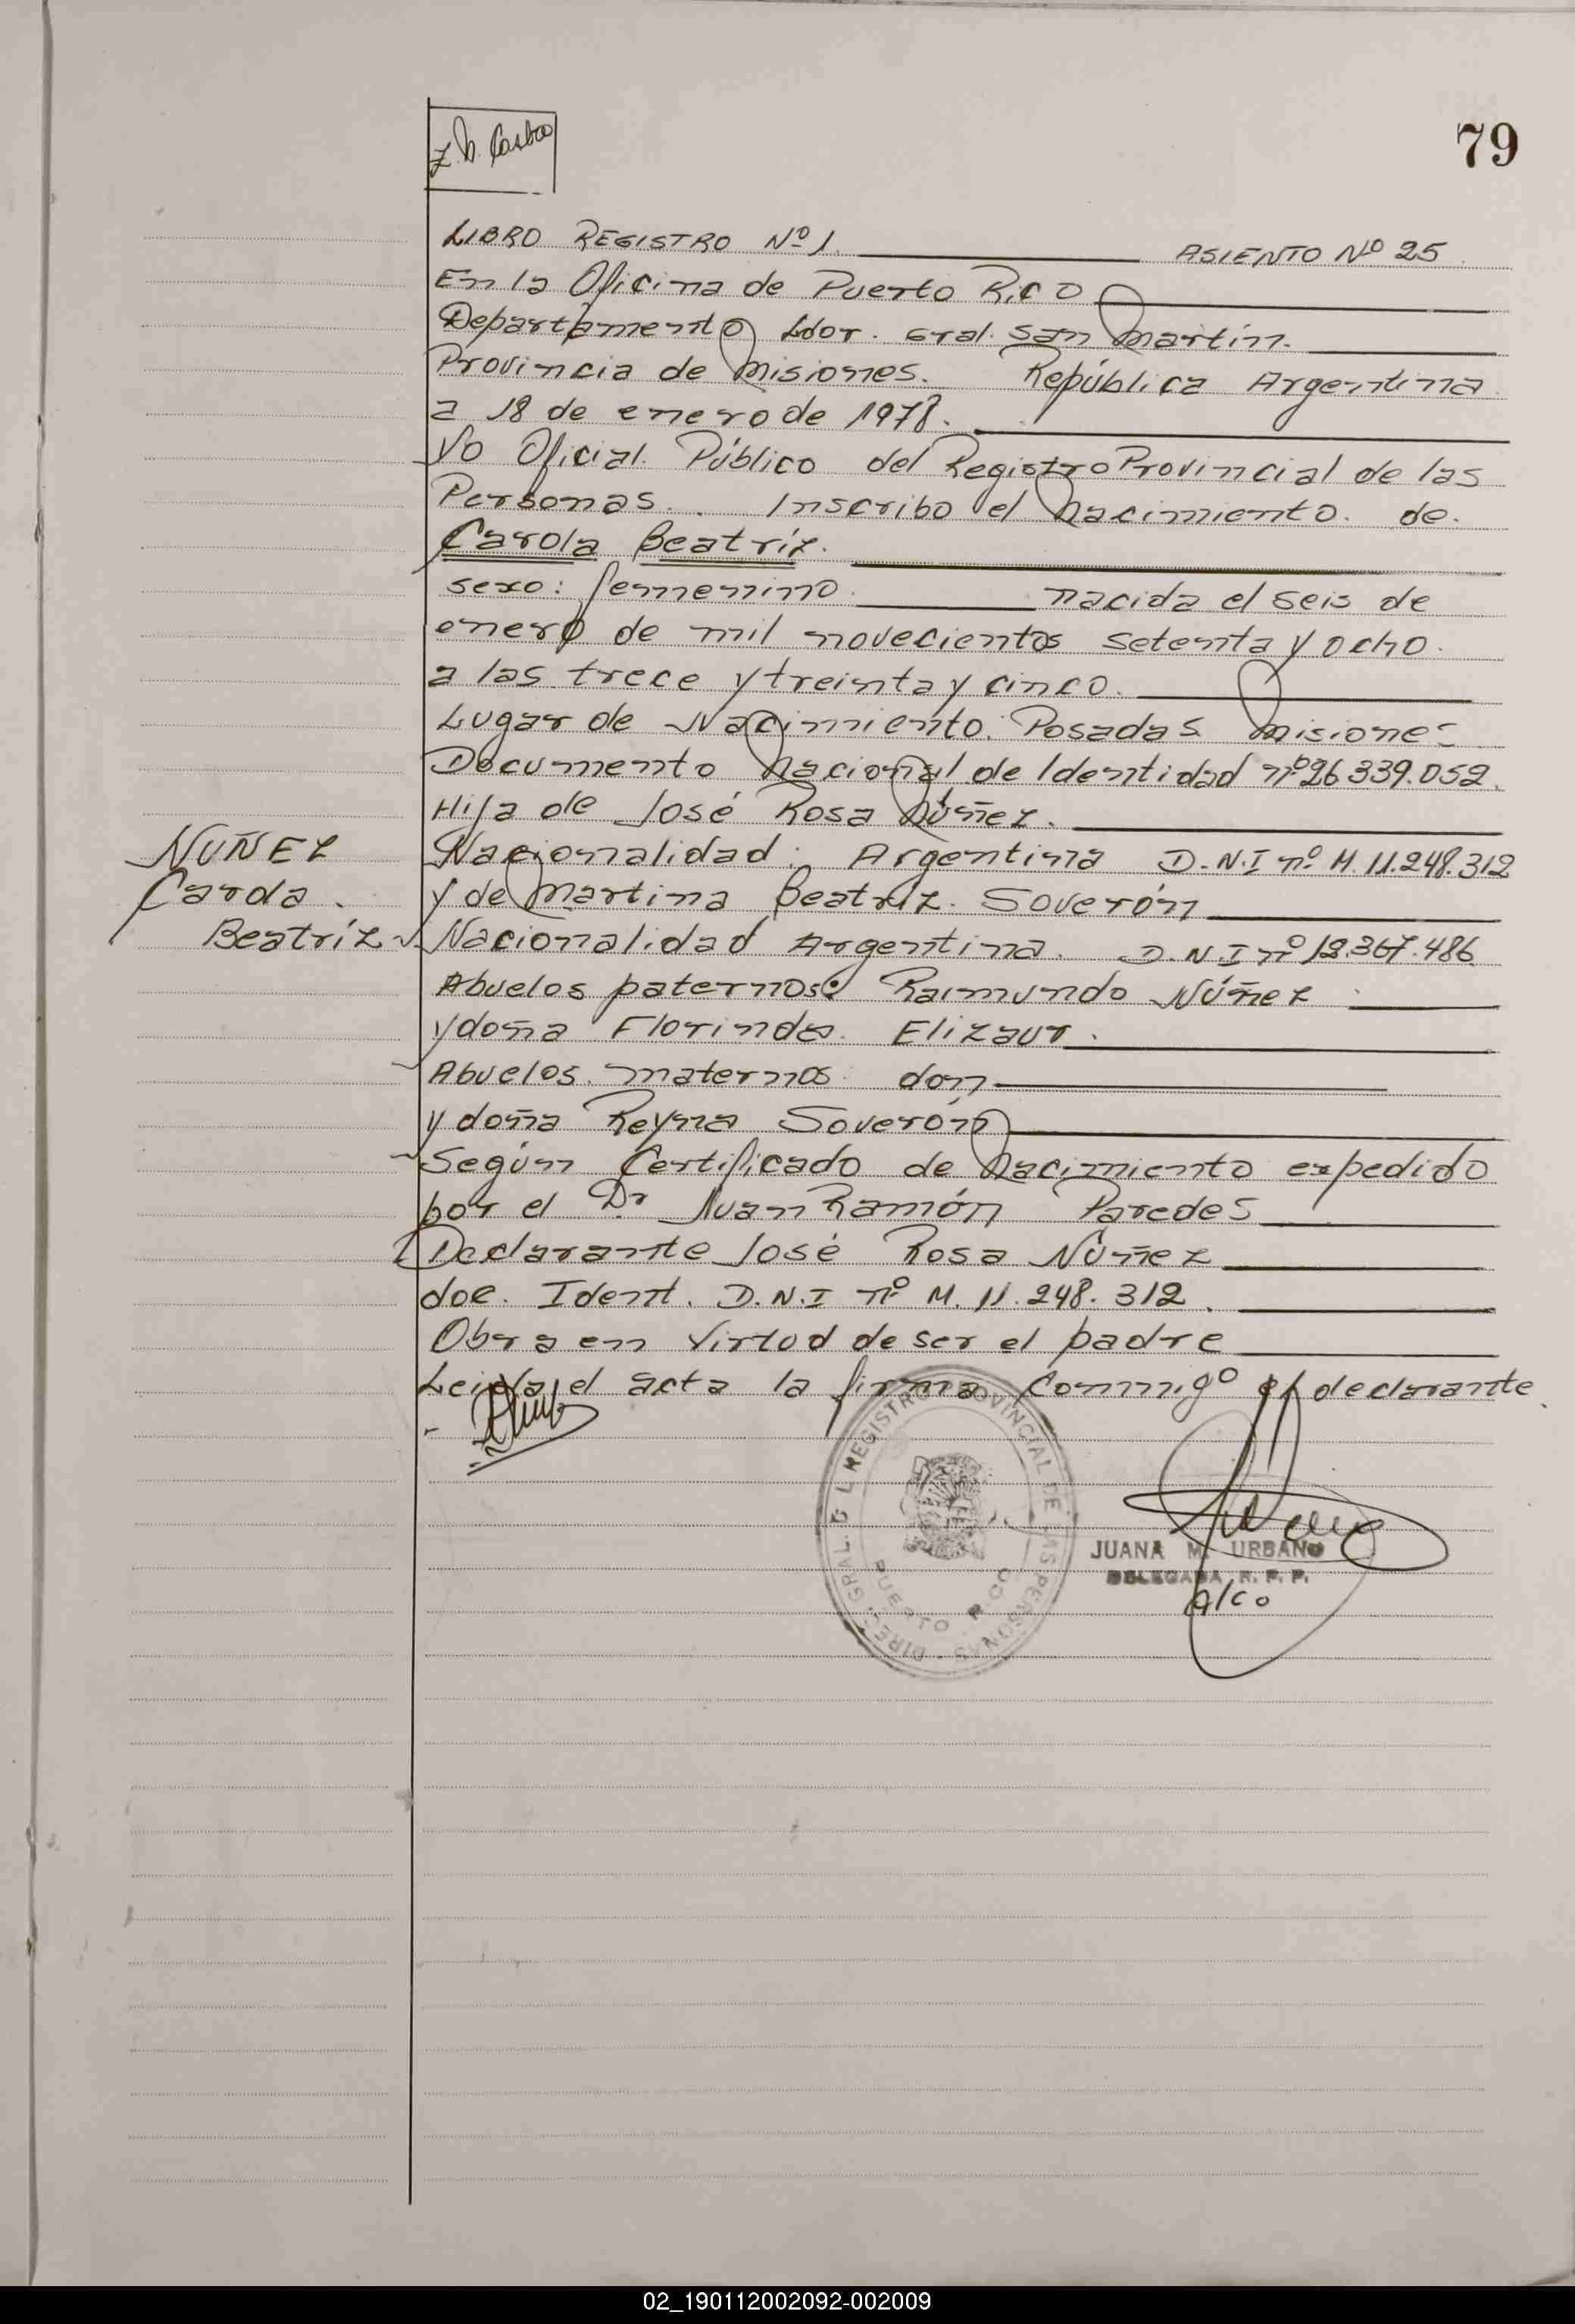 79
Z. N. Castro
LIBRO REGISTRO Nº 1. ASIENTO Nº 25
En la Oficina de Puerto Rico
Departamento Ldor. Gral. San Martín.
Provincia de Misiones. República Argentina
a 18 de enero de 1978.
Yo Oficial Público del Registro Provincial de las
Personas. Inscribo el Nacimiento de
Carola Beatríz.
sexo: femenino. nacida el seis de
enero de mil novecientos setenta y ocho.
a las trece y treinta y cinco.
Lugar de Nacimiento: Posadas Misiones
Documento Nacional de Identidad nº 26.339.052.
Hija de José Rosa Núñez.
Nacionalidad: Argentina D.N.I nº M. 11.248.312
y de Martina Beatriz Soverón
Nacionalidad Argentina. D.N.I nº 12.367.486
NUÑEZ
Carola.
Beatríz
Abuelos paternos: Raimundo Núñez
y doña Florinda Elizaur.
Abuelos maternos don
y doña Reyna Soverón
Según Certificado de Nacimiento expedido
por el Dr Juan Ramón Paredes
Declarante José Rosa Núñez
doc. Ident. D.N.I nº M. 11.248.312.
Obra en virtud de ser el padre
Leida el acta la firma conmigo el declarante.
DIREC. GRAL. DEL REGISTRO PROVINCIAL DE LAS PERSONAS
PUERTO RICO
JUANA M. URBANO
DELEGADA R. P. P.
a/co
02_190112002092-002009